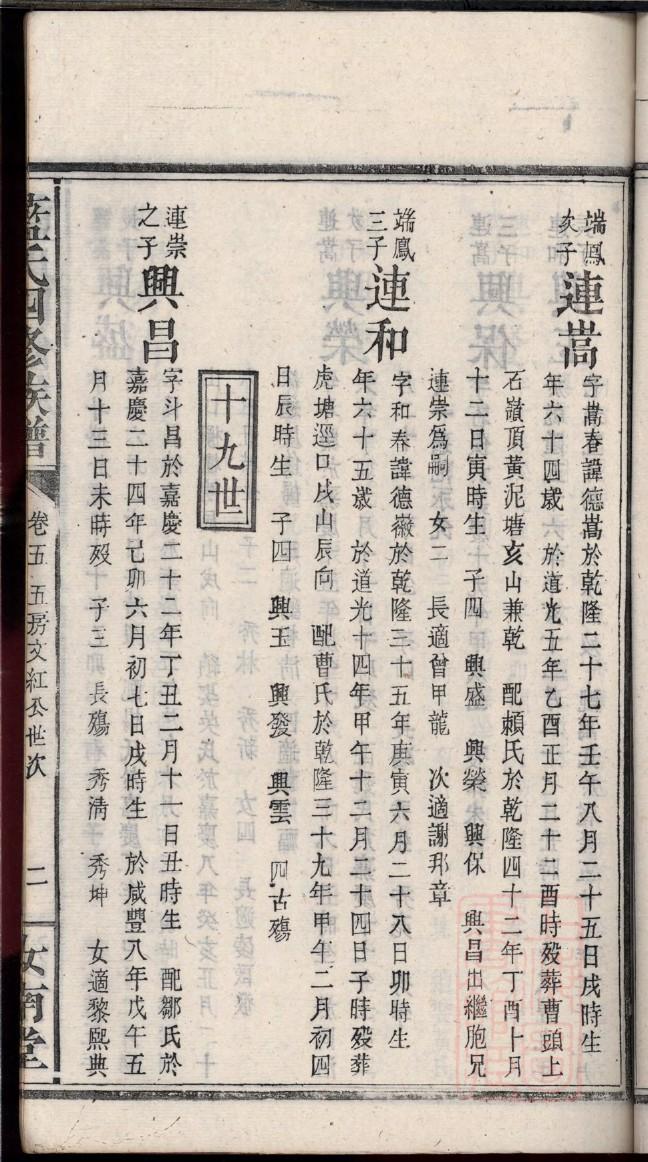 端鳳
次子
連嵩
字嵩春諱德嵩於乾隆二十七年壬午八月二十五日戌時生
年六十四歲 於道光五年乙酉正月二十二酉時歿葬曹頭上
石嶺頂黃泥塘亥山兼乾 配賴氏於乾隆四十二年丁酉十月
十二日寅時生 子四 興盛 興榮 興保 興昌出繼胞兄
連崇爲嗣 女二 長適曾甲龍 次適謝邦章
端鳳
三子
連和
字和春諱德薇於乾隆三十五年庚寅六月二十八日卯時生
年六十五歲 於道光十四年甲午十二月二十四日子時歿葬
虎塘逕口戌山辰向 配曹氏於乾隆三十九年甲午二月初四
日辰時生 子四 興玉 興發 興雲 四古殤
十九世
連崇
之子
興昌
字斗昌於嘉慶二十二年丁丑二月十一日丑時生 配鄒氏於
嘉慶二十四年己卯六月初七日戌時生 於咸豐八年戊午五
月十三日未時歿 子三 長殤 秀清 秀坤 女適黎熙典
藍氏四修族譜
卷五 五房文紅公世次
二
汝南堂